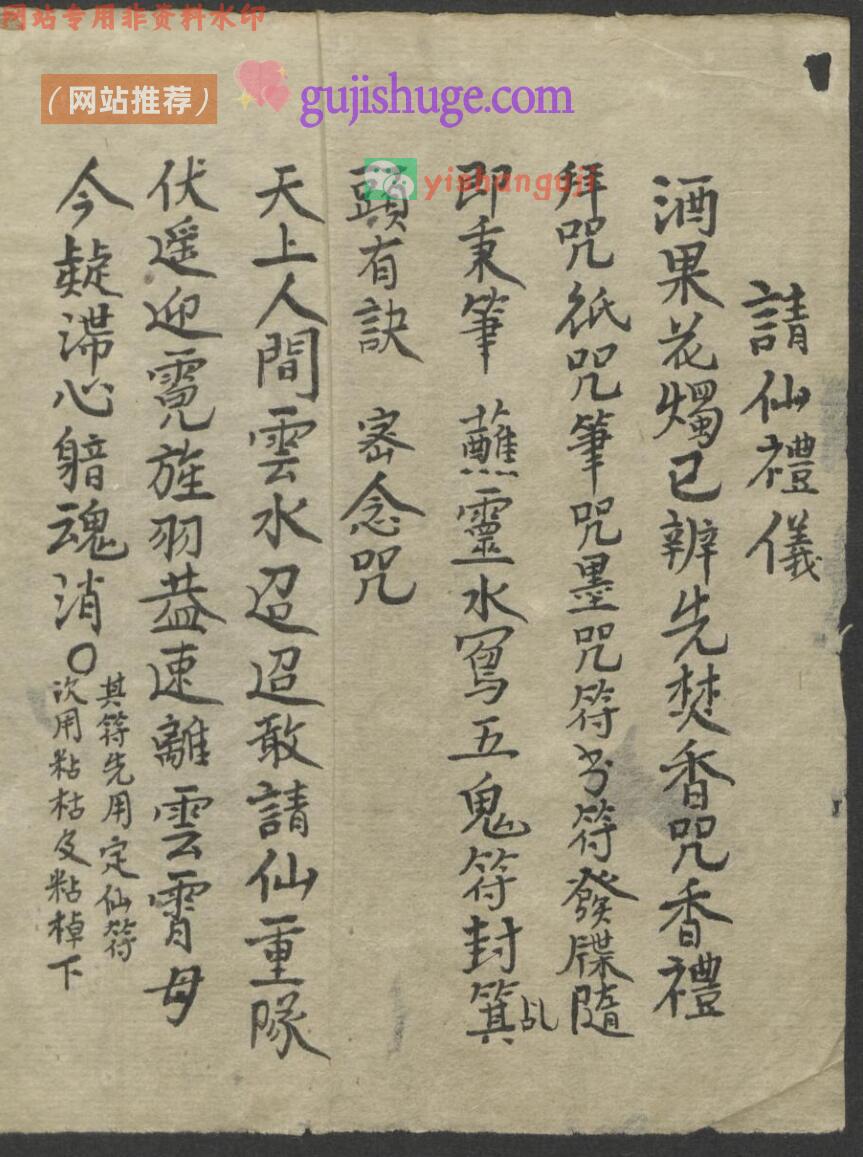 网站专用非资料水印
（网站推荐）
gujishuge.com
yishanguji
請仙禮儀
酒果花燭已辦先焚香咒香禮
拜咒紙咒筆咒墨咒符書符發牒隨
即秉筆蘸靈水寫五鬼符封箕乩
頭有訣 密念咒
天上人間雲水迢迢敢請仙童隊
伏遥迎霓旌羽葢速離雲霄毋
今疑滯心䁆魂消〇
其符先用定仙符
次用粘枯皮粘棹下